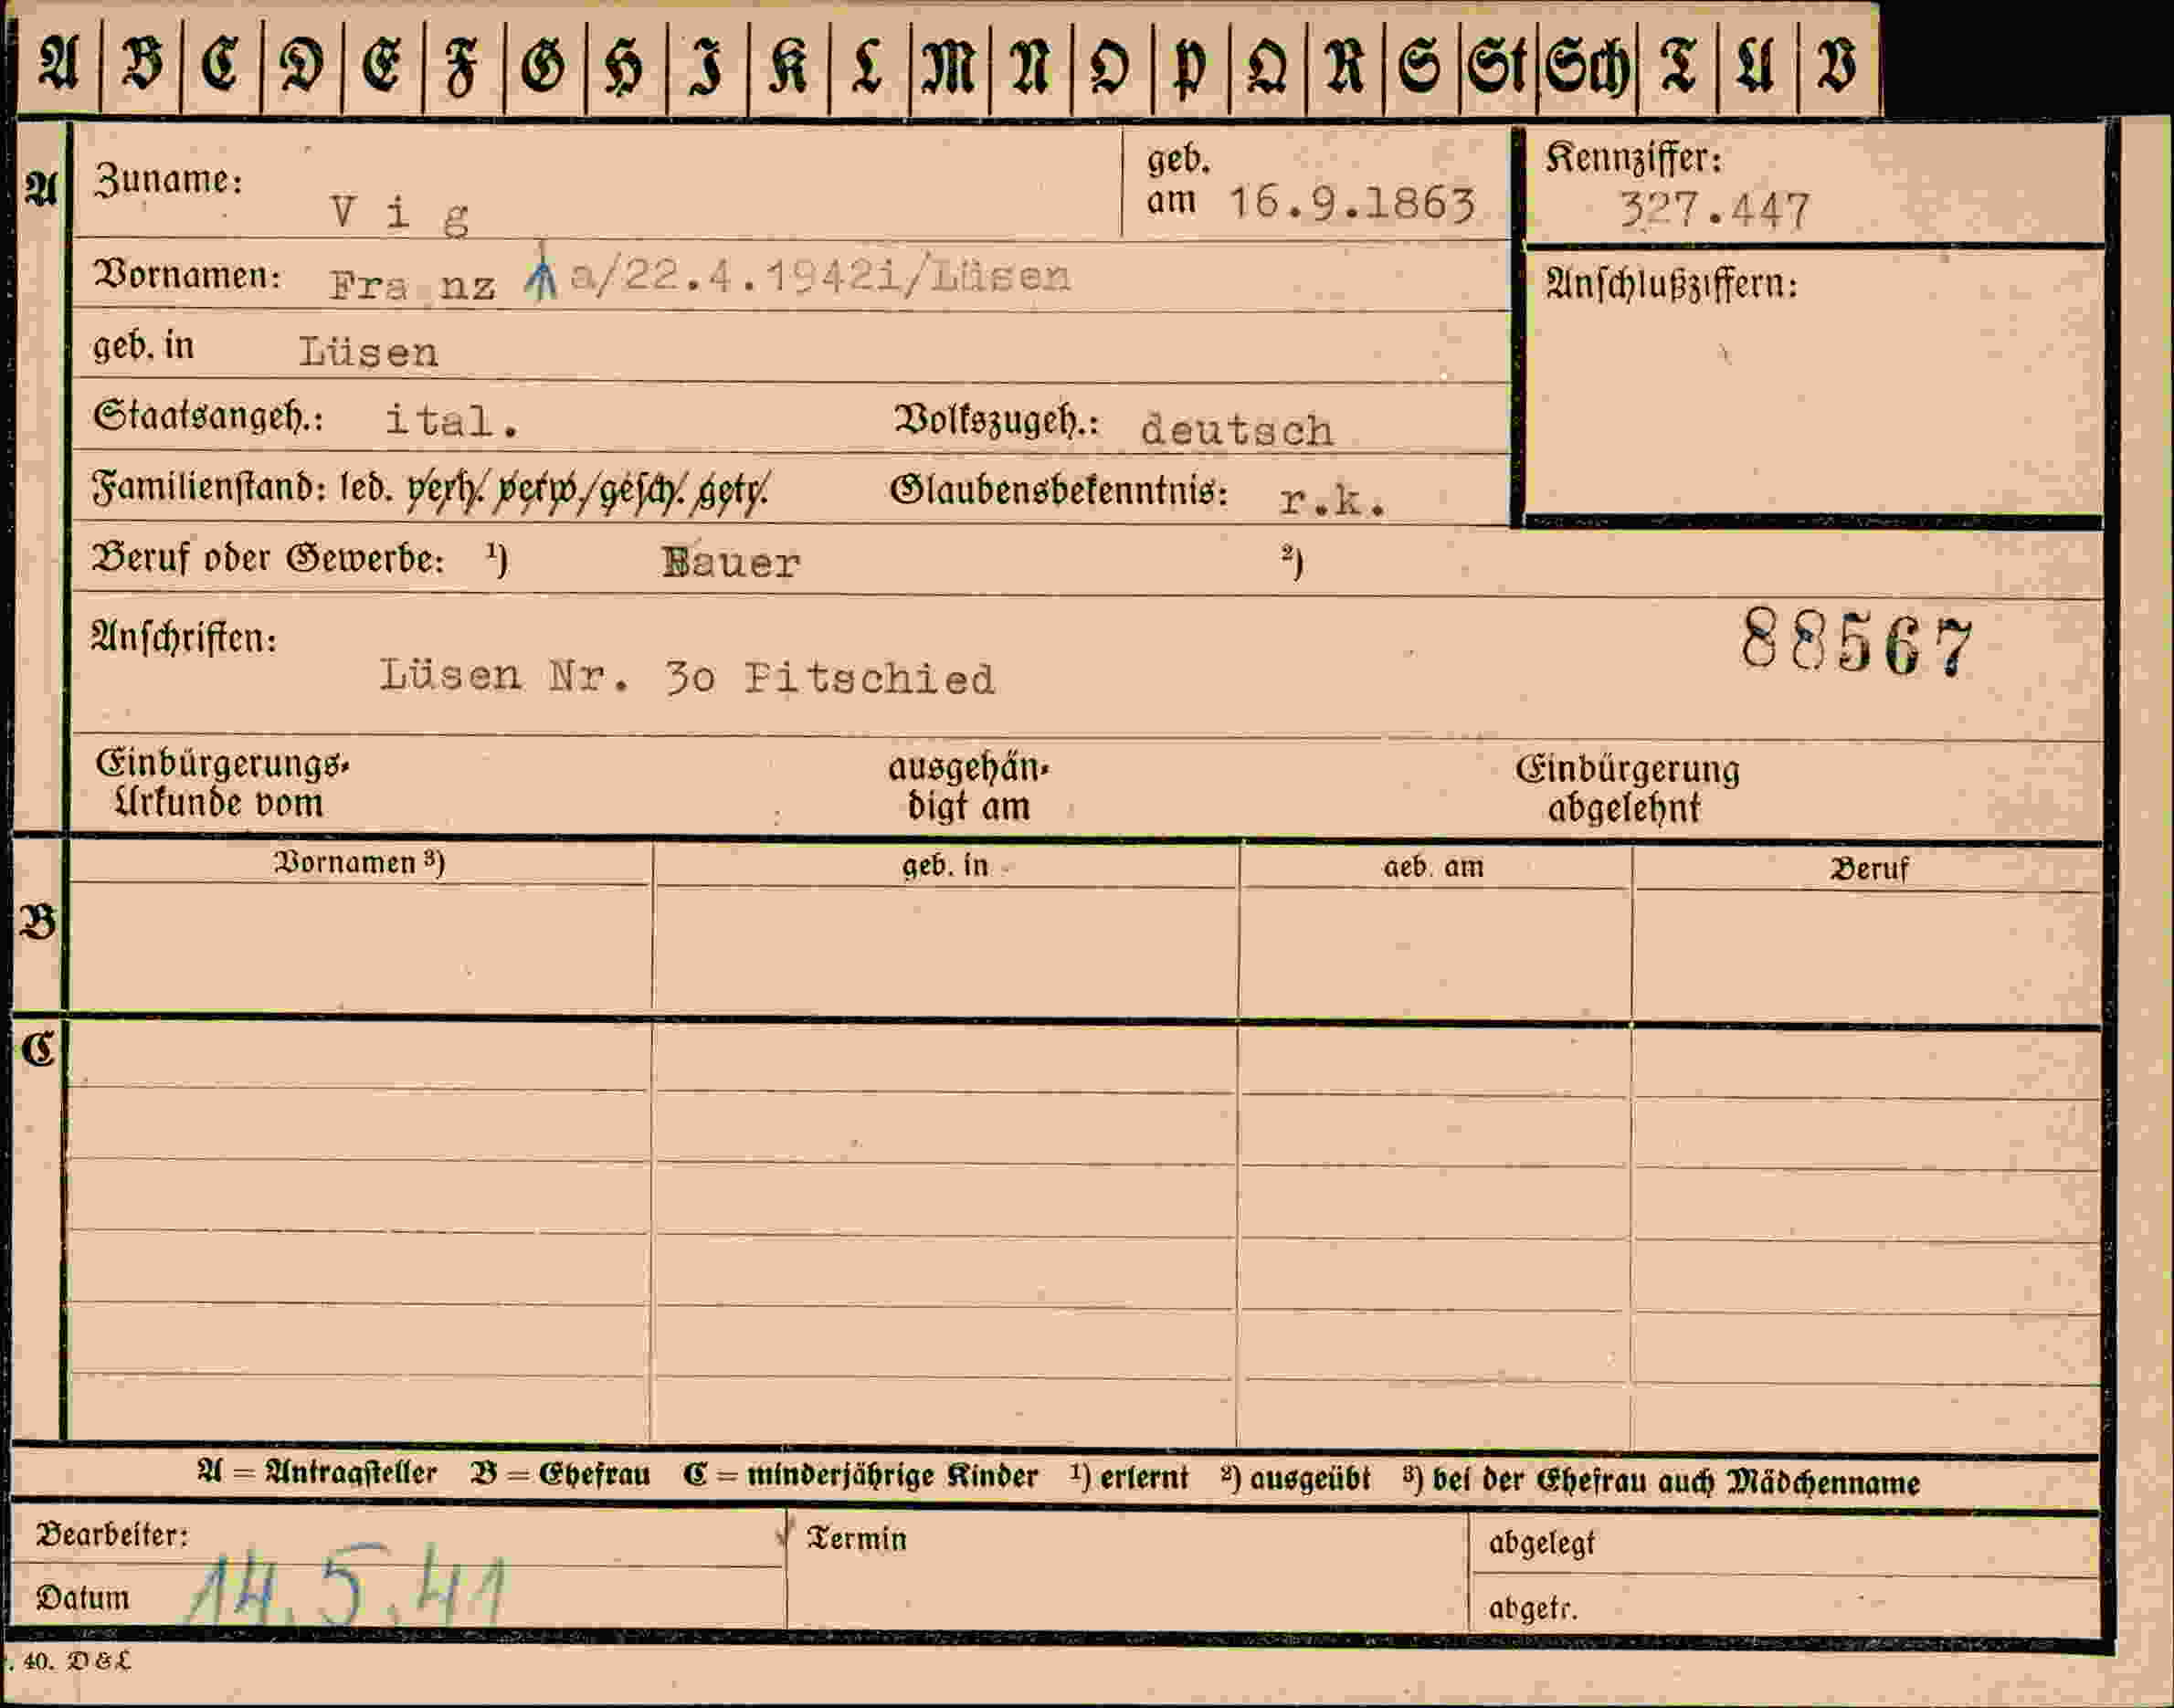 A B C D E F G H I K L M N O P Q R S St Sch T U V
A
Zuname: V i g
geb. am 16.9.1863
Kennziffer: 327.447
Vornamen: Fra nz a/22.4.1942i/Lüsen
Anschlußziffern:
geb. in Lüsen
Staatsangeh.: ital. Volkszugeh.: deutsch
Familienstand: led. verh. verw./gesch. getr. Glaubensbekenntnis: r.k.
Beruf oder Gewerbe: ¹) Bauer ²)
Anschriften: 88567
Lüsen Nr. 3o Pitschied
Einbürgerungs- Urkunde vom
ausgehän- digt am
Einbürgerung abgelehnt
B
Vornamen ³) geb. in geb. am Beruf
C
A = Antragsteller B = Ehefrau C = minderjährige Kinder ¹) erlernt ²) ausgeübt ³) bei der Ehefrau auch Mädchenname
Bearbeiter: Termin abgelegt
Datum 14.5.41 abgetr.
. 40. D & L